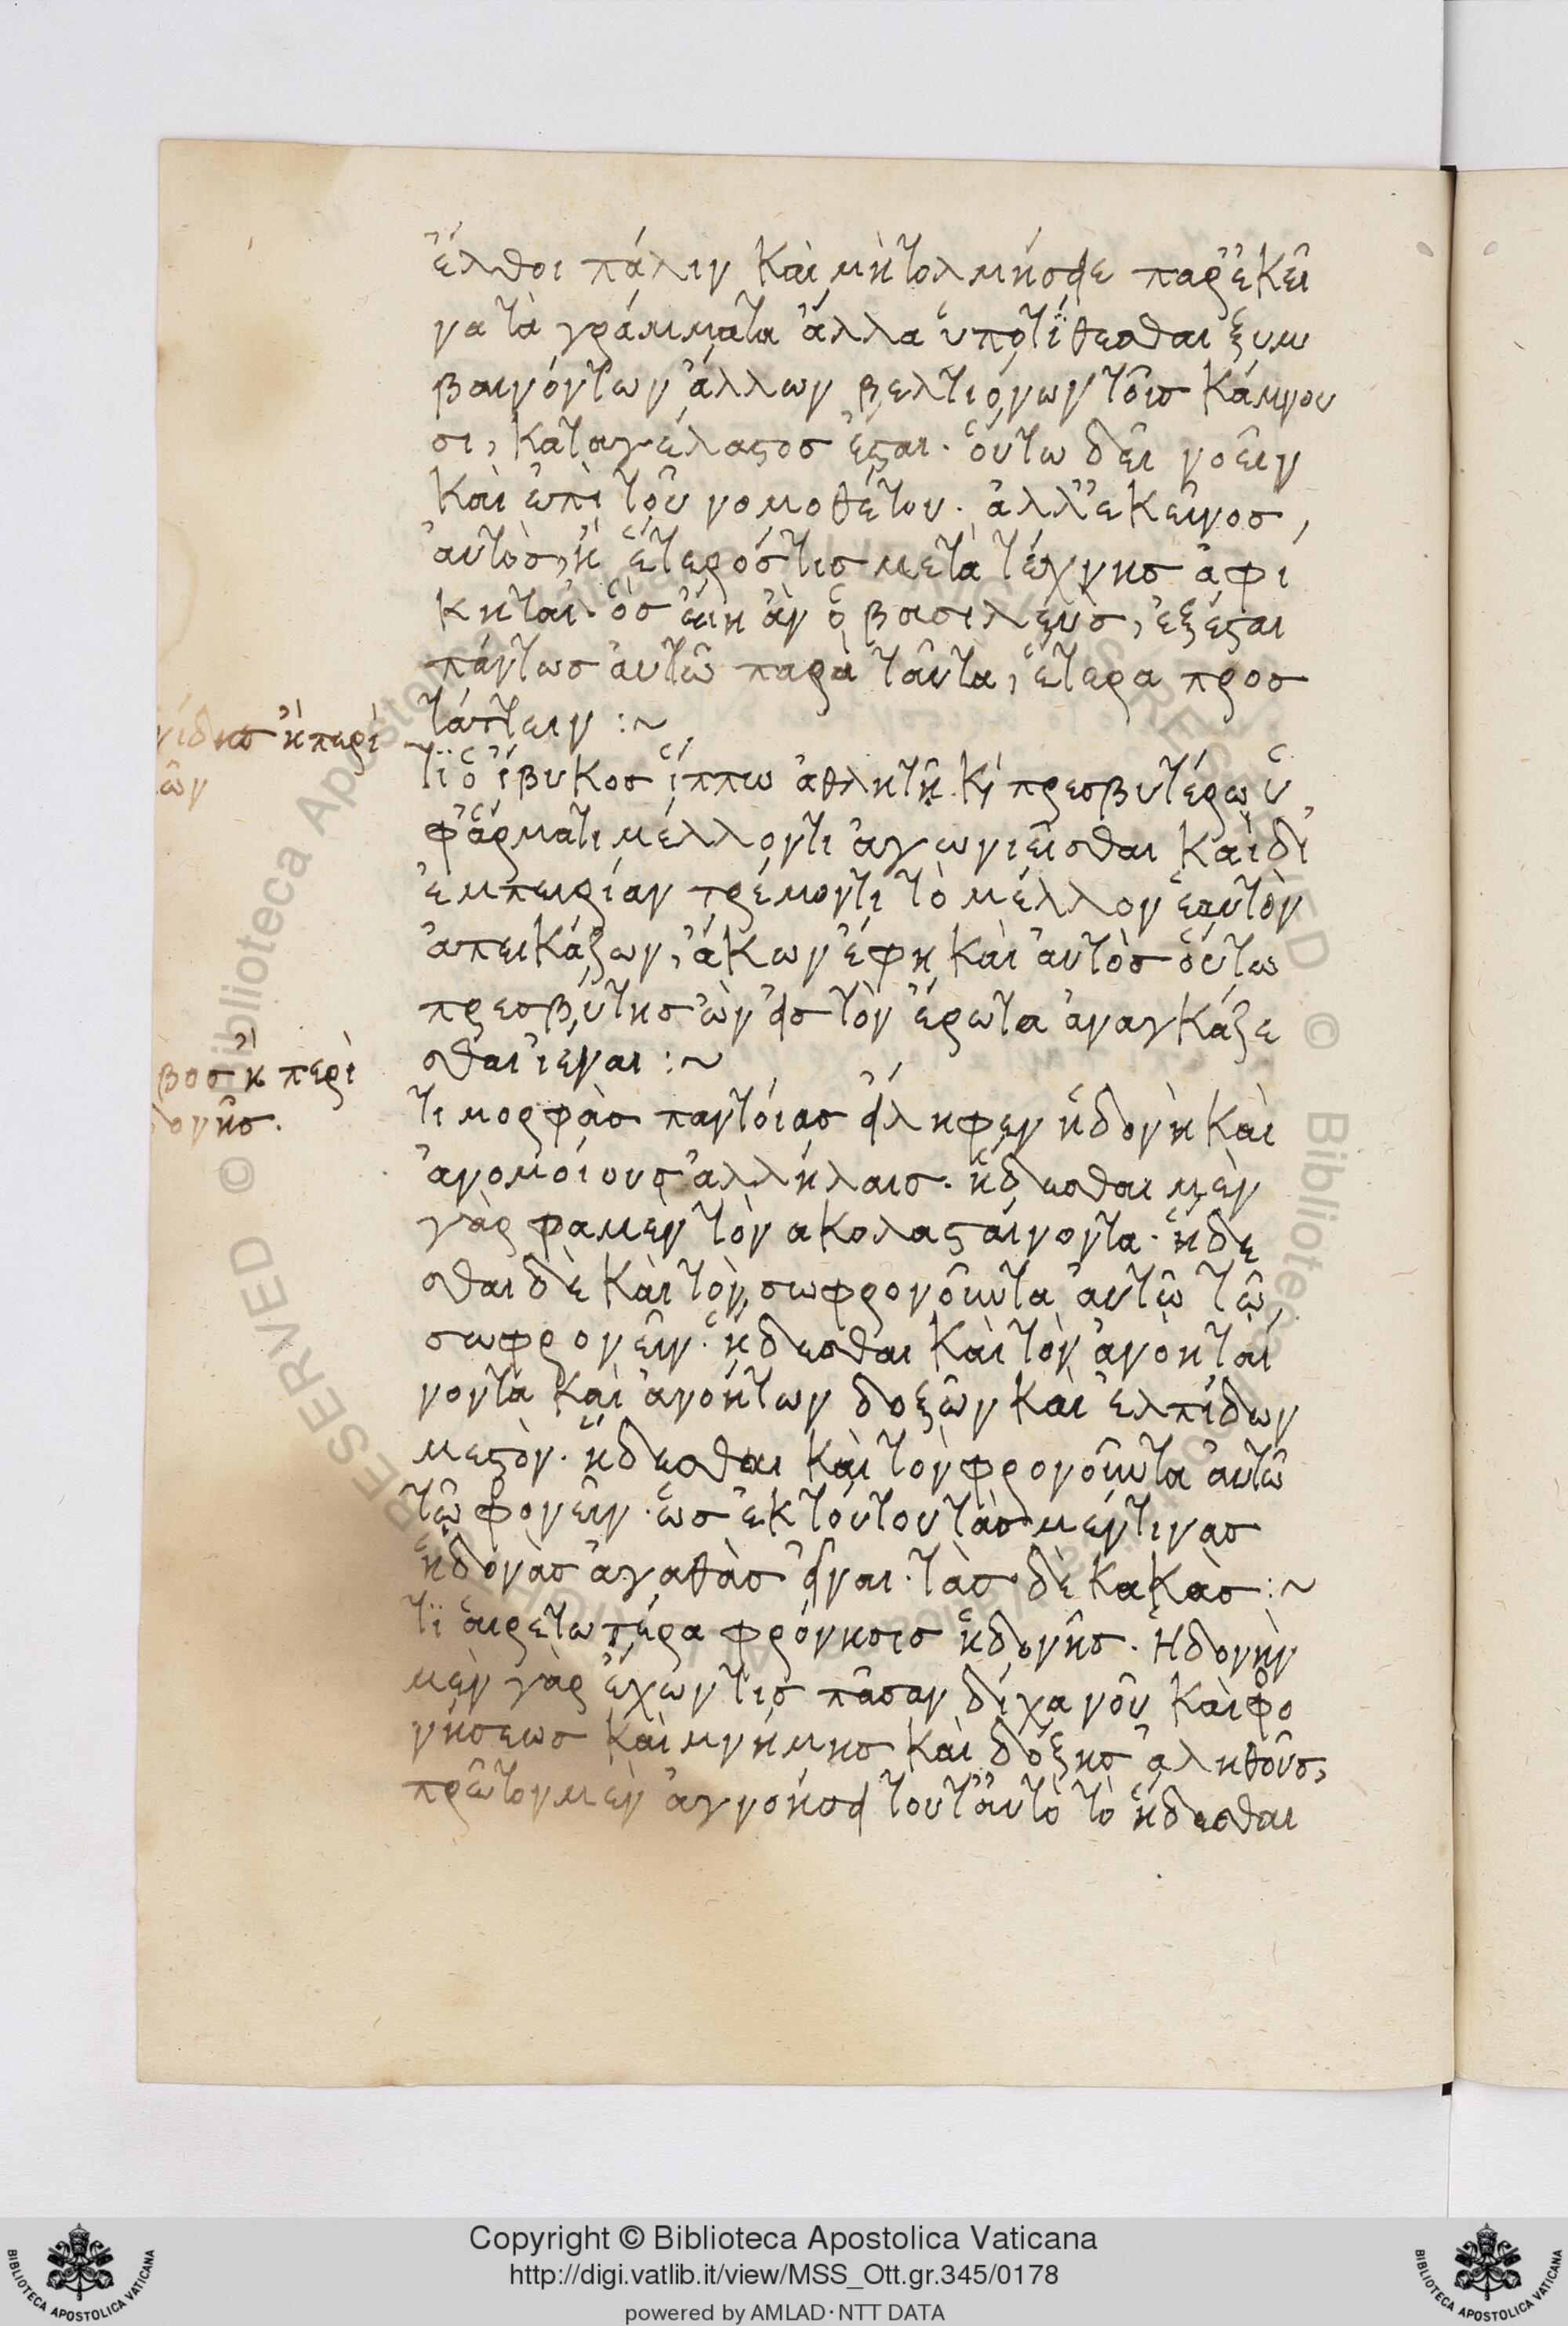 ἔλθοι πάλιν καὶ μὴ τολμήσειε παρ' ἐκεῖ
να τὰ γράμματα ἄλλα ὑποτίθεσθαι ξυμ
βαινόντων ἄλλων βελτιόνων τοῖς κάμνου
σι, καταγέλαστος ἔσται. οὕτω δεῖ νοεῖν
καὶ ἐπὶ τοῦ νομοθέτου. ἀλλ' ἐκεῖνος,
αὐτὸς, ἢ ἕτερός τις μετὰ τέχνης ἀφί
κηται. ὃς εἴη ἂν ὁ βασιλεὺς, ἐξέσται
πάντως αὐτῷ παρὰ ταῦτα, ἕτερα προσ
τάττειν :~
νίδης ἢ περὶ
ῶν
τϊ ὁ ἴβυκος ἵππω ἀθλητῆ κ πρεσβυτέρω ὑ
φ' ἅρματι μέλλοντι ἀγωνιεῖσθαι καὶ δι'
ἐμπειρίαν τρέμοντι τὸ μέλλον ἑαυτὸν
ἀπεικάζων, ἄκων ἔφη καὶ αὐτὸς οὕτω
πρεσβύτης ὢν εἰς τὸν ἔρωτα ἀναγκάζε
σθαι ἰέναι :~
βος ἢ περὶ
ονῆς.
τι μορφὰς παντοίας εἴληφεν ἡδονὴ καὶ
ἀνομοίους ἀλλήλαις. ἥδεσθαι μὲν
γὰρ φαμὲν τὸν ακολασταίνοντα. ἥδε
σθαι δὲ καὶ τὸν σωφρονοῦντα αὐτῶ τῶ
σωφρονεῖν. ἥδεσθαι καὶ τὸν ἀνοηταί
νοντα καὶ ἀνοήτων δοξῶν καὶ ἐλπίδων
μεστὸν. ἥδεσθαι καὶ τὸν φρονοῦντα αὐτῶ
τῶ φρονεῖν. ὡς ἐκ τούτου τὰς μέν τινας
ἡδονὰς ἀγαθὰς εἶναι. τὰς δὲ κακὰς :~
τϊ αἱρετωτέρα φρόνησις ἡδονῆς. Ηδονὴν
μὲν γὰρ ἔχων τις πᾶσαν δίχα νοῦ καὶ φρο
νήσεως καὶ μνήμης καὶ δόξης ἀληθοῦς,
πρῶτον μὲν ἀγνοήσει τοῦτ' αὐτὸ τὸ ἥδεσθαι
Copyright © Biblioteca Apostolica Vaticana
http://digi.vatlib.it/view/MSS_Ott.gr.345/0178
powered by AMLAD·NTT DATA